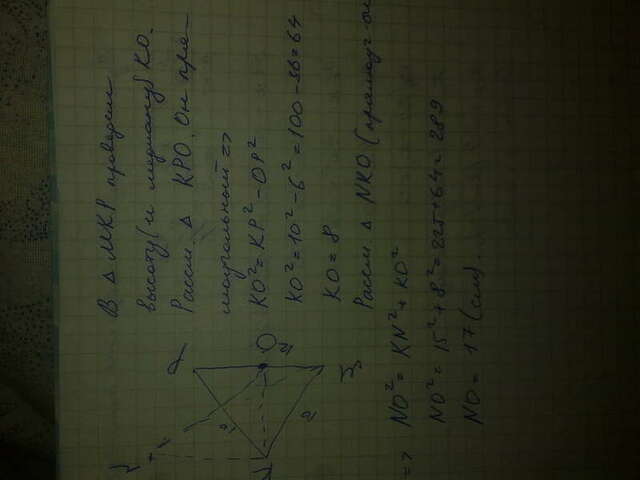 В △ MKP проведем
высоту (и медиану) KO.
Рассм. △ KPO. Он пря-
моугольный =>
KO² = KP² - OP²
KO² = 10² - 6² = 100 - 36 = 64
KO = 8
Рассм △ NKO (прямоуг-ый
=> NO² = KN² + KO²
NO² = 15² + 8² = 225 + 64 = 289
NO = 17 (см).
P
O